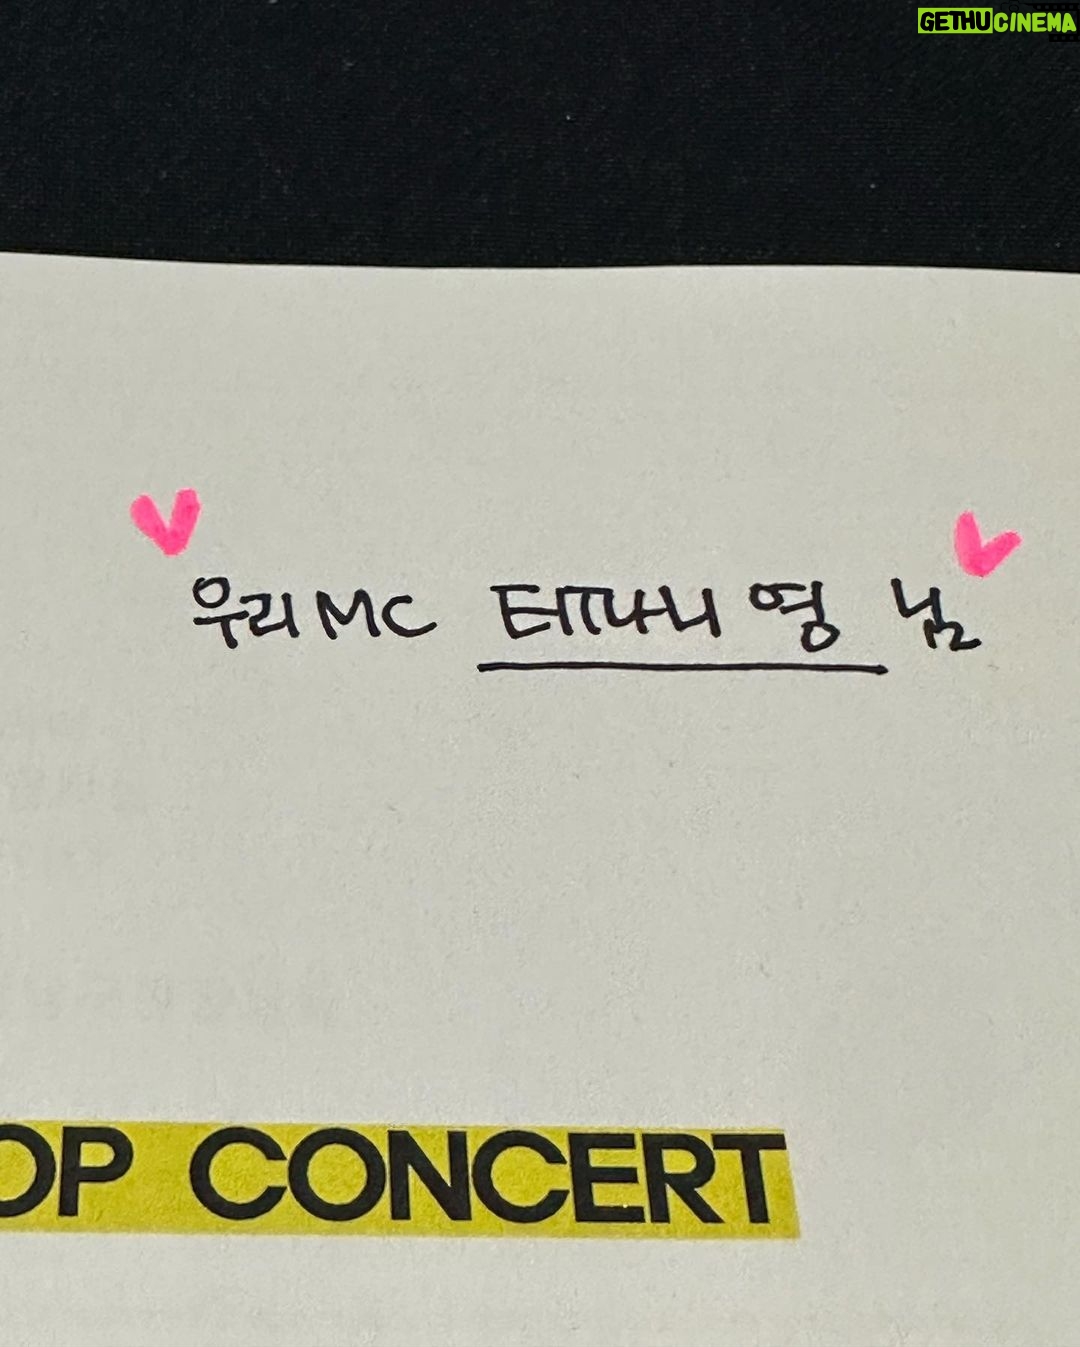 GETHUCINEMA
우리 MC 티파니 영 님
OP CONCERT